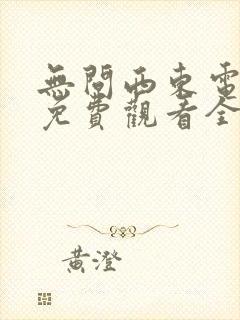 無問西東電
免費觀看全
黃澄